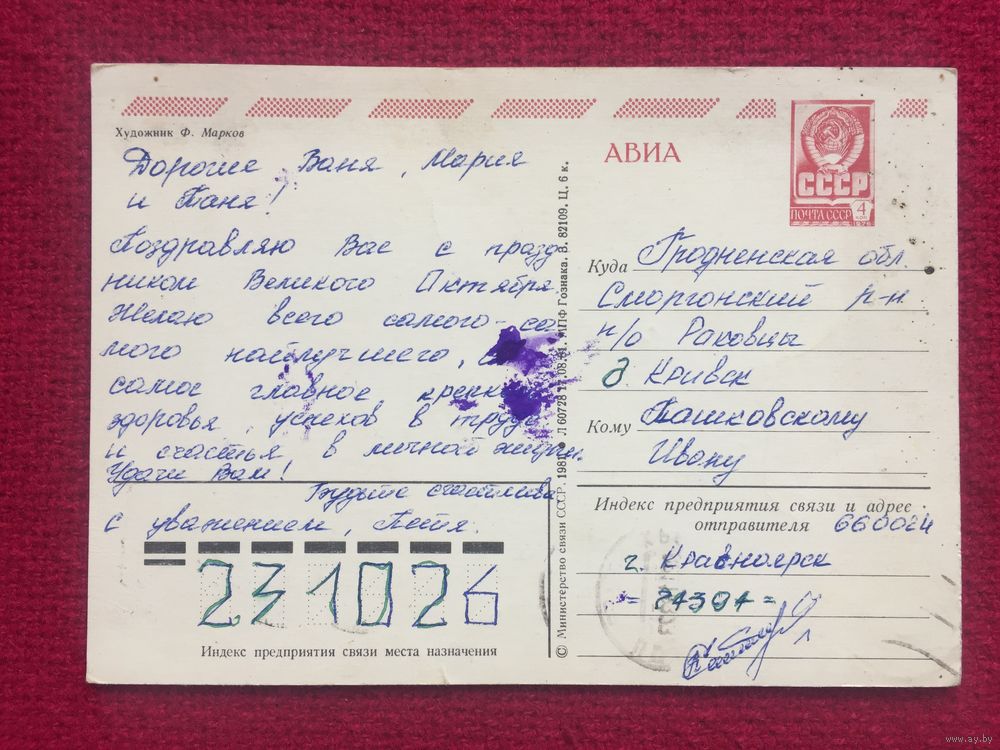 Художник Ф. Марков
Дорогие Ваня, Мария
и Таня!
Поздравляю Вас с празд
ником Великого Октября.
Желаю всего самого-са
мого наилучшего,
самое главное крепкого
здоровья, успехов в труде
и счастья в личной жизни.
Удачи Вам!
Будьте счастливы
с уважением, Петя.
231026
Индекс предприятия связи места назначения
© Министерство связи СССР. 1981. Л 60728 МПФ Гознака. З. 82109. Ц. 6 к.
АВИА
СССР
ПОЧТА СССР
4
КОП
Куда Гродненская обл.
Сморгонский р-н
п/о Раковцы
д Кривск
Кому Пашковскому
Ивону
Индекс предприятия связи и адрес
отправителя 660024
г. Красноярск
= 74301 =
www.ay.by